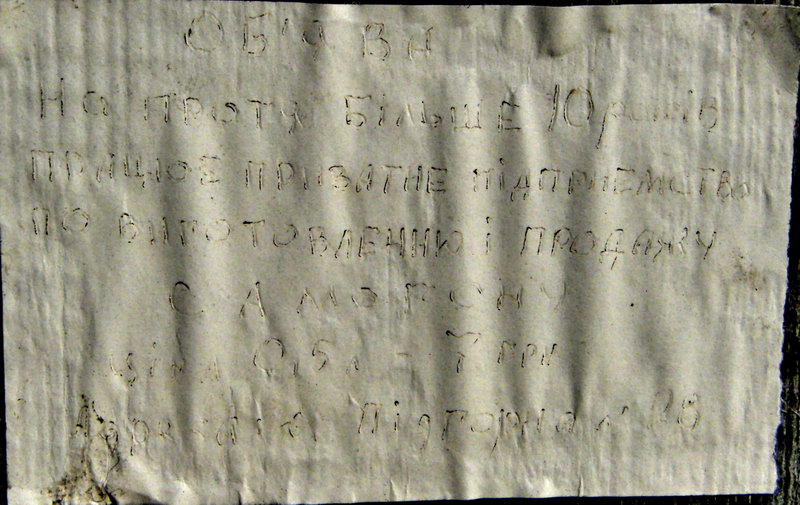 ОБ'ЯВА
НА ПРОТЯ БІЛЬШЕ 10 років
ПРАЦЮЄ ПРИВАТНЕ ПІДПРИЄМСТВО
ПО ВИГОТОВЛЕННЮ І ПРОДАЖУ
САМОГОНУ
ціна 0,5л - 7 грн
Підгорна 88